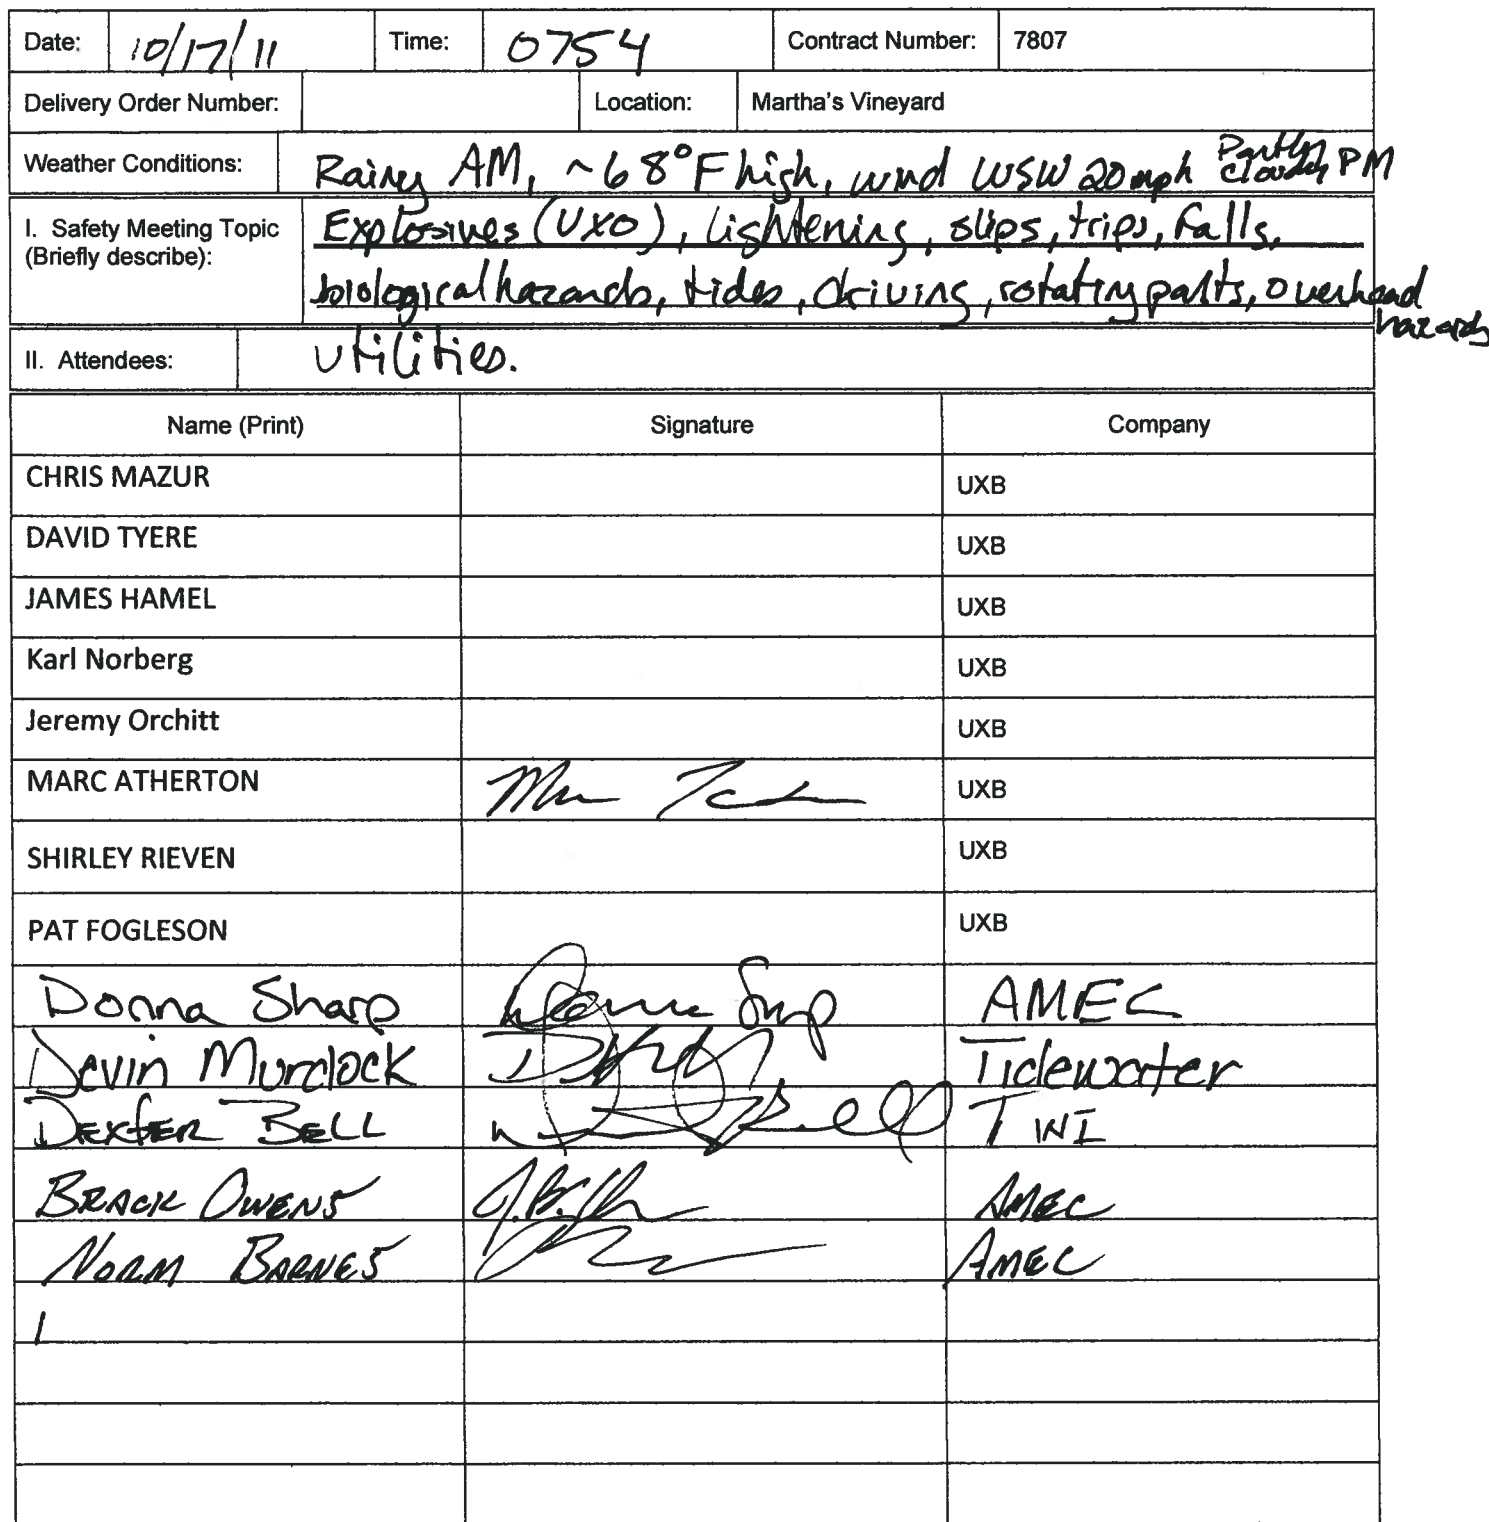 Date: 10/17/11 Time: 0754 Contract Number: 7807
Delivery Order Number: Location: Martha's Vineyard
Weather Conditions: Rainy AM, ~68°F high, wind WSW 20 mph Partly cloudy PM
I. Safety Meeting Topic (Briefly describe): Explosives (UXO), lightening, slips, trips, falls,
biological hazards, tides, driving, rotating parts, overhead hazards
utilities.
II. Attendees:
Name (Print) Signature Company
CHRIS MAZUR UXB
DAVID TYERE UXB
JAMES HAMEL UXB
Karl Norberg UXB
Jeremy Orchitt UXB
MARC ATHERTON UXB
SHIRLEY RIEVEN UXB
PAT FOGLESON UXB
Donna Sharp Donna Sharp AMEC
Devin Murdock Tidewater
DEXTER BELL TWI
BRACK OWENS AMEC
NORM BARNES AMEC